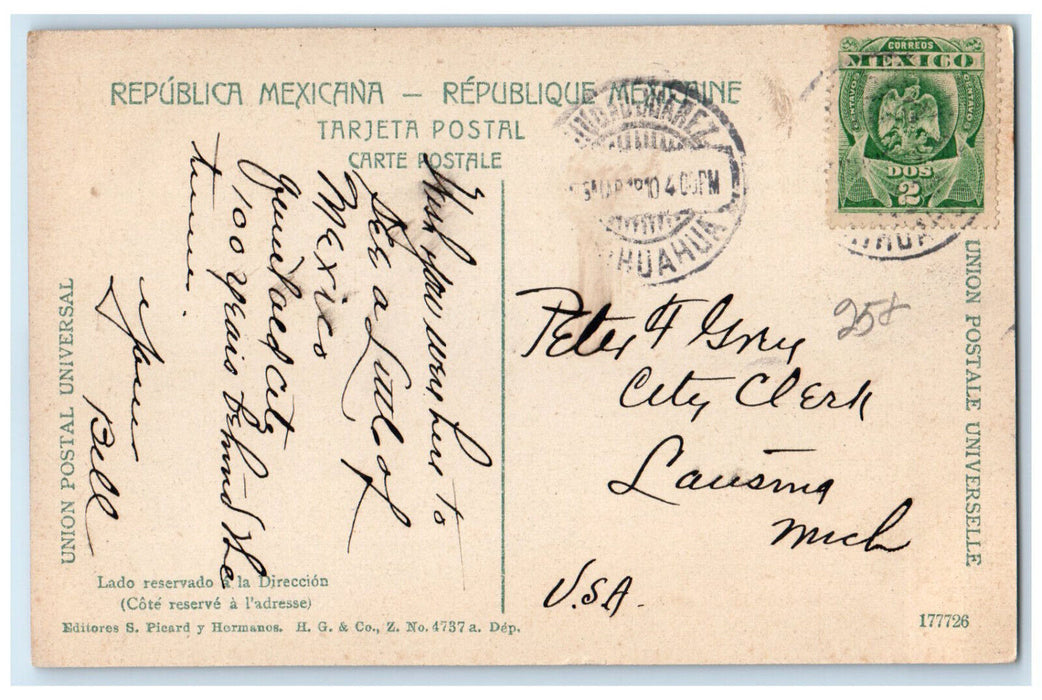 REPÚBLICA MEXICANA — RÉPUBLIQUE MEXICAINE
TARJETA POSTAL
CARTE POSTALE
CORREOS
MEXICO
CENTAVOS
CENTAVOS
DOS
2
CIUDAD JUAREZ
1910 4 00PM
CHIHUAHUA
CHIHUAHUA
UNION POSTAL UNIVERSAL
UNION POSTALE UNIVERSELLE
Wish you were here to
see a little of
Mexico
City
100 years behind the
times.
Yours
Bell
25¢
Peter F Gray
City Clerk
Lansing
Mich
U.S.A.
Lado reservado á la Dirección
(Côté reservé à l'adresse)
Editores S. Picard y Hermanos. H. G. & Co., Z. No. 4737 a. Dép.
177726